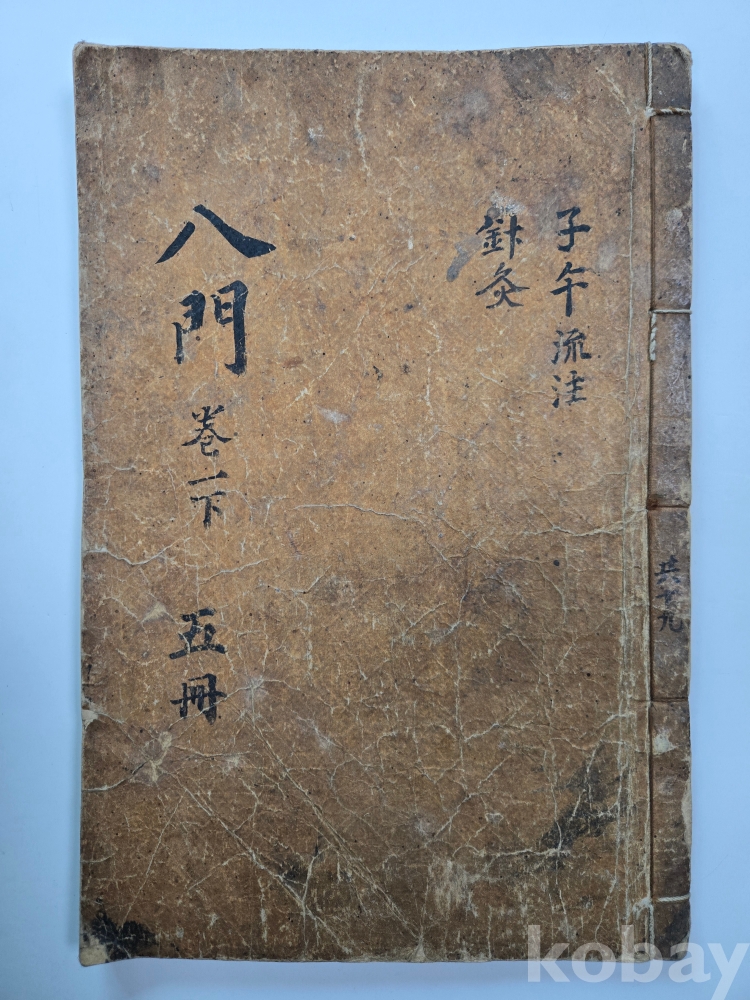 子午流注
針灸
八門 卷一下 五冊
共十九
kobay